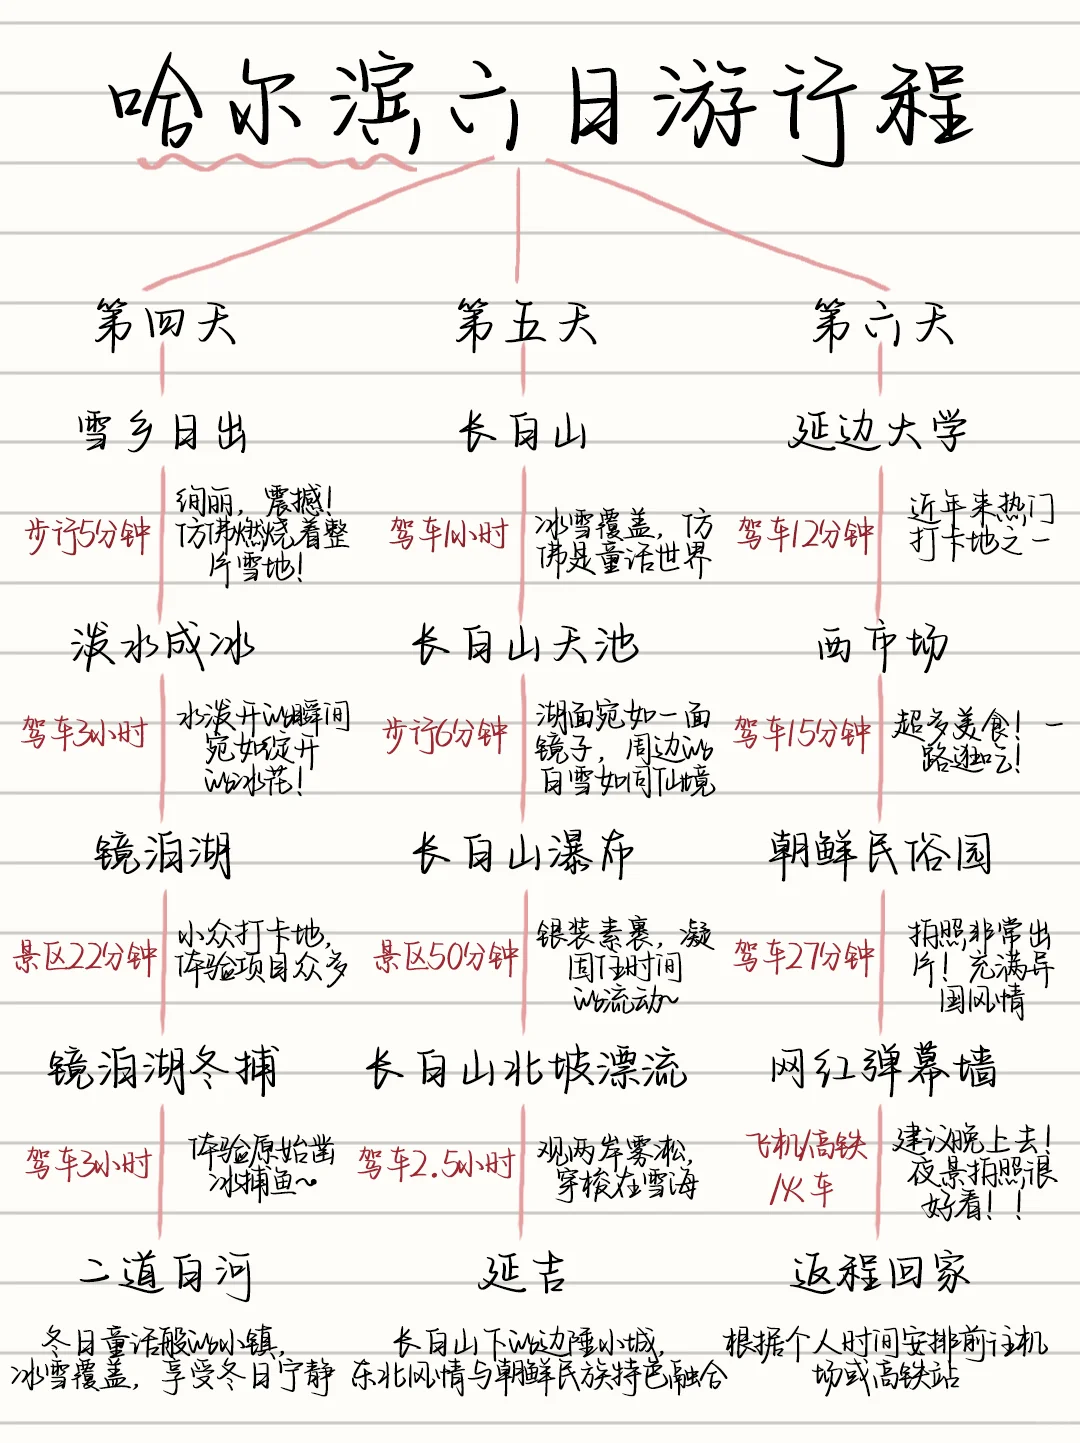 哈尔滨六日游行程
第四天
雪乡日出
步行5分钟
绚丽，震撼！
仿佛燃烧着整
片雪地！
泼水成冰
驾车3小时
水泼开的瞬间
宛如绽开
的冰花！
镜泊湖
景区22分钟
小众打卡地，
体验项目众多
镜泊湖冬捕
驾车3小时
体验原始凿
冰捕鱼～
二道白河
冬日童话般的小镇，
冰雪覆盖，享受冬日宁静
第五天
长白山
驾车1小时
冰雪覆盖，仿
佛是童话世界
长白山天池
步行6分钟
湖面宛如一面
镜子，周边的
白雪如同仙境
长白山瀑布
景区50分钟
银装素裹，凝
固住时间
的流动～
长白山北坡漂流
驾车2.5小时
观两岸雾凇，
穿梭在雪海
延吉
长白山下的边陲小城，
东北风情与朝鲜民族特色融合
第六天
延边大学
驾车12分钟
近年来热门
打卡地之一
西市场
驾车15分钟
超多美食！一
路逛吃！
朝鲜民俗园
驾车27分钟
拍照非常出
片！充满异
国风情
网红弹幕墙
飞机/高铁
/火车
建议晚上去！
夜景拍照很
好看！！
返程回家
根据个人时间安排前往机
场或高铁站